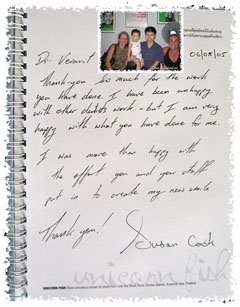 06/08/05
Dr. Veranit
Thank-you so much for the work
you have done. I have been unhappy
with other dentists work - but I am very
happy with what you have done for me.
I was more than happy with
the effort you and your staff
put in to create my new smile
Thank you!
Susan Cook
unicorn fish